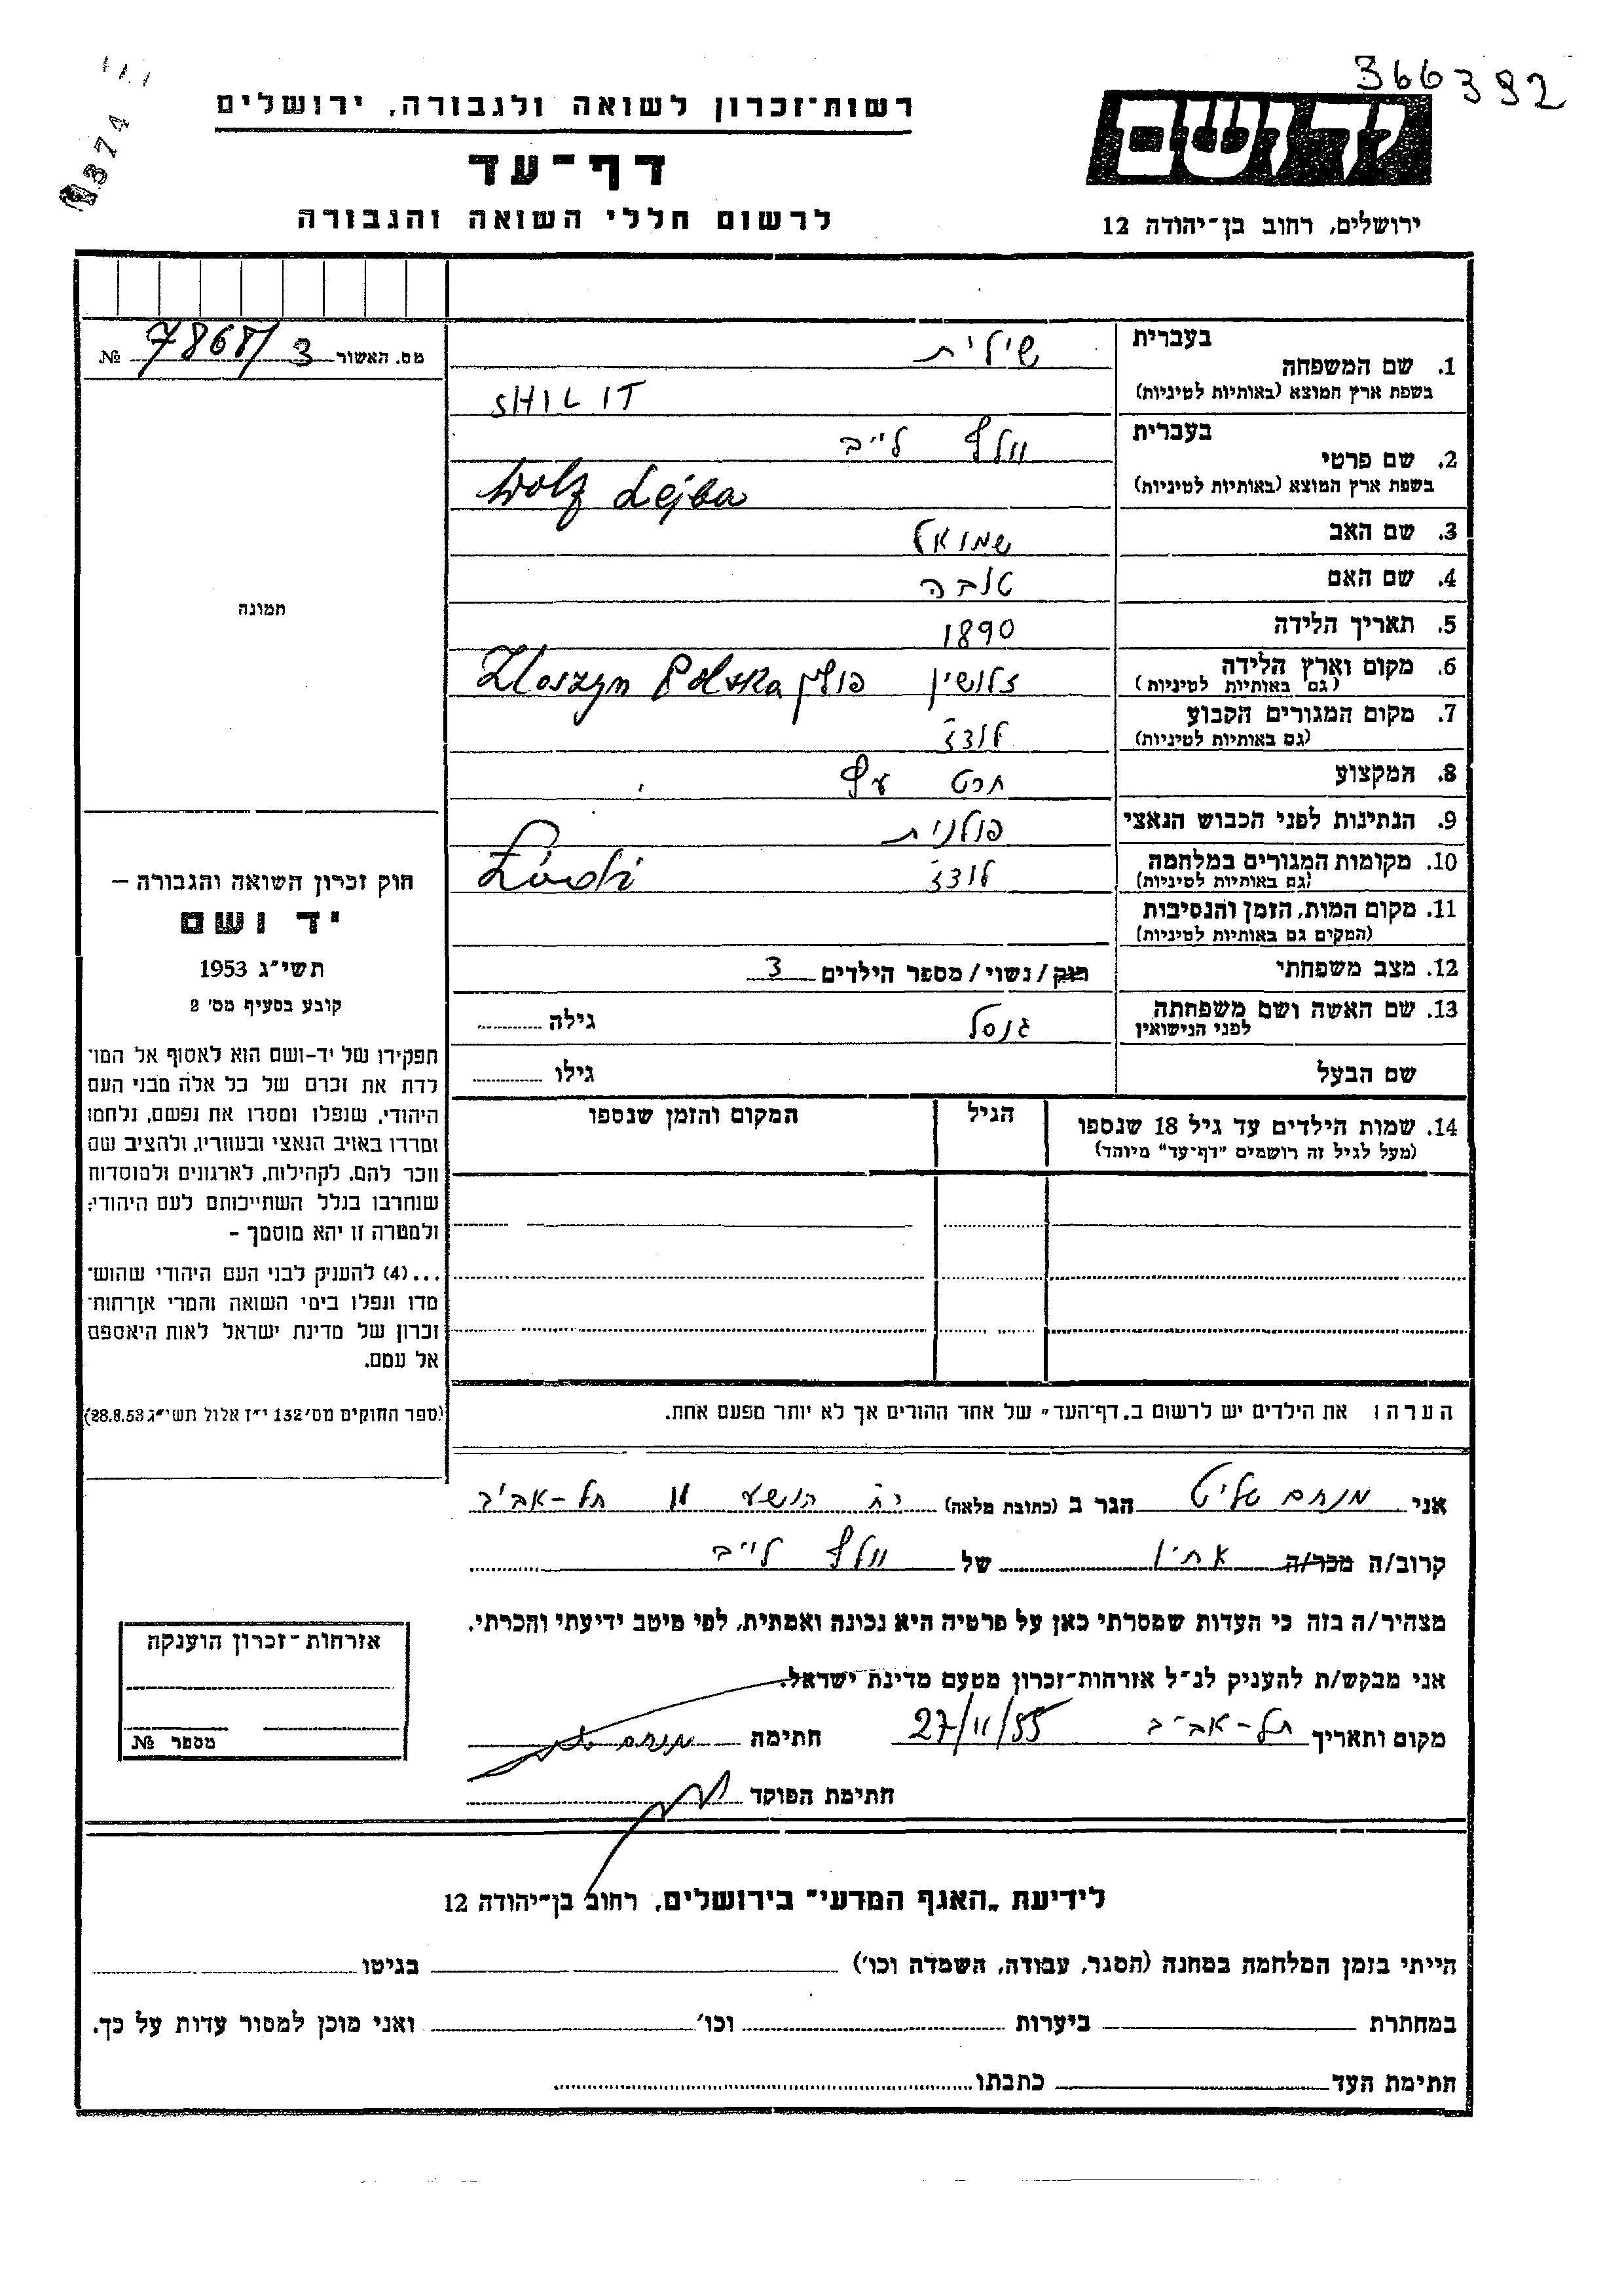 366392
374
רשות־זכרון לשואה ולגבורה, ירושלים
יד ושם
דף־עד
לרשום חללי השואה והגבורה
ירושלים, רחוב בן־יהודה 12
מס. האשור 7868/3 №
בעברית שילית
1. שם המשפחה
בשפת ארץ המוצא (באותיות לטיניות) SHILIT
בעברית וולף לייב
2. שם פרטי
בשפת ארץ המוצא (באותיות לטיניות) Wolf Lejba
3. שם האב שמואל
4. שם האם טובה
5. תאריך הלידה 1890
6. מקום וארץ הלידה זלושין פולין Zloszyn Polska
(גם באותיות לטיניות)
7. מקום המגורים הקבוע לודז
(גם באותיות לטיניות)
8. המקצוע חרט עץ
9. הנתינות לפני הכבוש הנאצי פולנית
10. מקומות המגורים במלחמה לודז Łódź
(גם באותיות לטיניות)
11. מקום המות, הזמן והנסיבות
(המקום גם באותיות לטיניות)
12. מצב משפחתי רוק/נשוי/מספר הילדים 3
13. שם האשה ושם משפחתה גילה
לפני הנישואין
שם הבעל גילו
14. שמות הילדים עד גיל 18 שנספו הגיל המקום והזמן שנספו
(מעל לגיל זה רושמים "דף־עד" מיוחד)
הערה: את הילדים יש לרשום ב„דף־העד" של אחד ההורים אך לא יותר מפעם אחת.
תמונה
חוק זכרון השואה והגבורה –
יד ושם
תשי"ג 1953
קובע בסעיף מס' 2
תפקידו של יד-ושם הוא לאסוף אל המו־
לדת את זכרם של כל אלה מבני העם
היהודי, שנפלו ומסרו את נפשם, נלחמו
ומרדו באויב הנאצי ובעוזריו, ולהציב שם
וזכר להם, לקהילות, לארגונים ולמוסדות
שנחרבו בגלל השתייכותם לעם היהודי;
ולמטרה זו יהא מוסמך –
...(4) להעניק לבני העם היהודי שהוש־
מדו ונפלו בימי השואה והמרי אזרחות־
זכרון של מדינת ישראל לאות היאספם
אל עמם.
(ספר החוקים מס' 132 י"ז אלול תשי"ג 28.8.53)
אני מנחם שליט הגר ב (כתובת מלאה) הושע 11 תל-אביב
קרוב/ה מכר/ה אחיו של וולף לייב
מצהיר/ה בזה כי העדות שמסרתי כאן על פרטיה היא נכונה ואמתית, לפי מיטב ידיעתי והכרתי.
אני מבקש/ת להעניק לנ"ל אזרחות־זכרון מטעם מדינת ישראל.
מקום ותאריך תל-אביב 27/11/55 חתימה מנחם
חתימת הפוקד
אזרחות־זכרון הוענקה
מספר №
לידיעת „האגף המדעי" בירושלים, רחוב בן־יהודה 12
הייתי בזמן המלחמה במחנה (הסגר, עבודה, השמדה וכו') בגיטו
במחתרת ביערות וכו' ואני מוכן למסור עדות על כך.
חתימת העד כתבתו